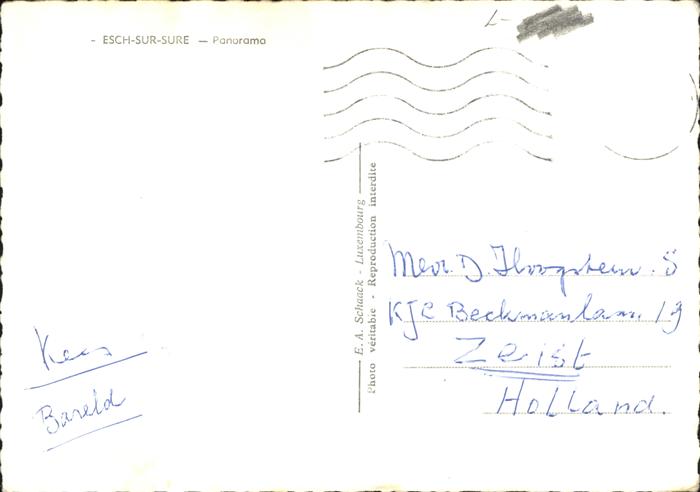 - ESCH-SUR-SURE — Panorama
E. A. Schaack - Luxembourg
Photo véritable - Reproduction interdite
Mevr. D.
Beckmanlaan. 19
Zeist
Holland.
Kees
Bareld